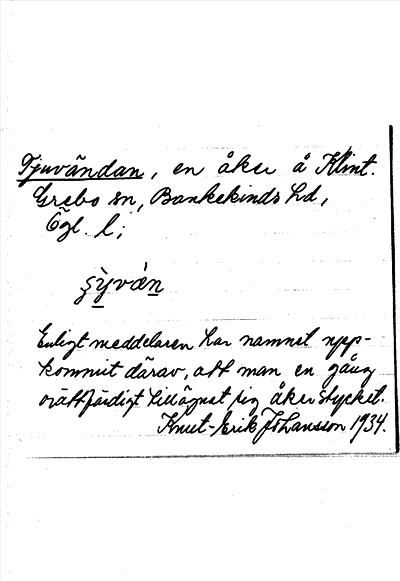 Tjuvändan, en åker å Klint.
Grebo sn, Bankekinds hd,
Ögl. l;
ʂỳván
Enligt meddelaren har namnet upp-
kommit därav, att man en gång
orättfärdigt tillägnat sig åkerstycket.
Knut-Erik Johansson 1934.